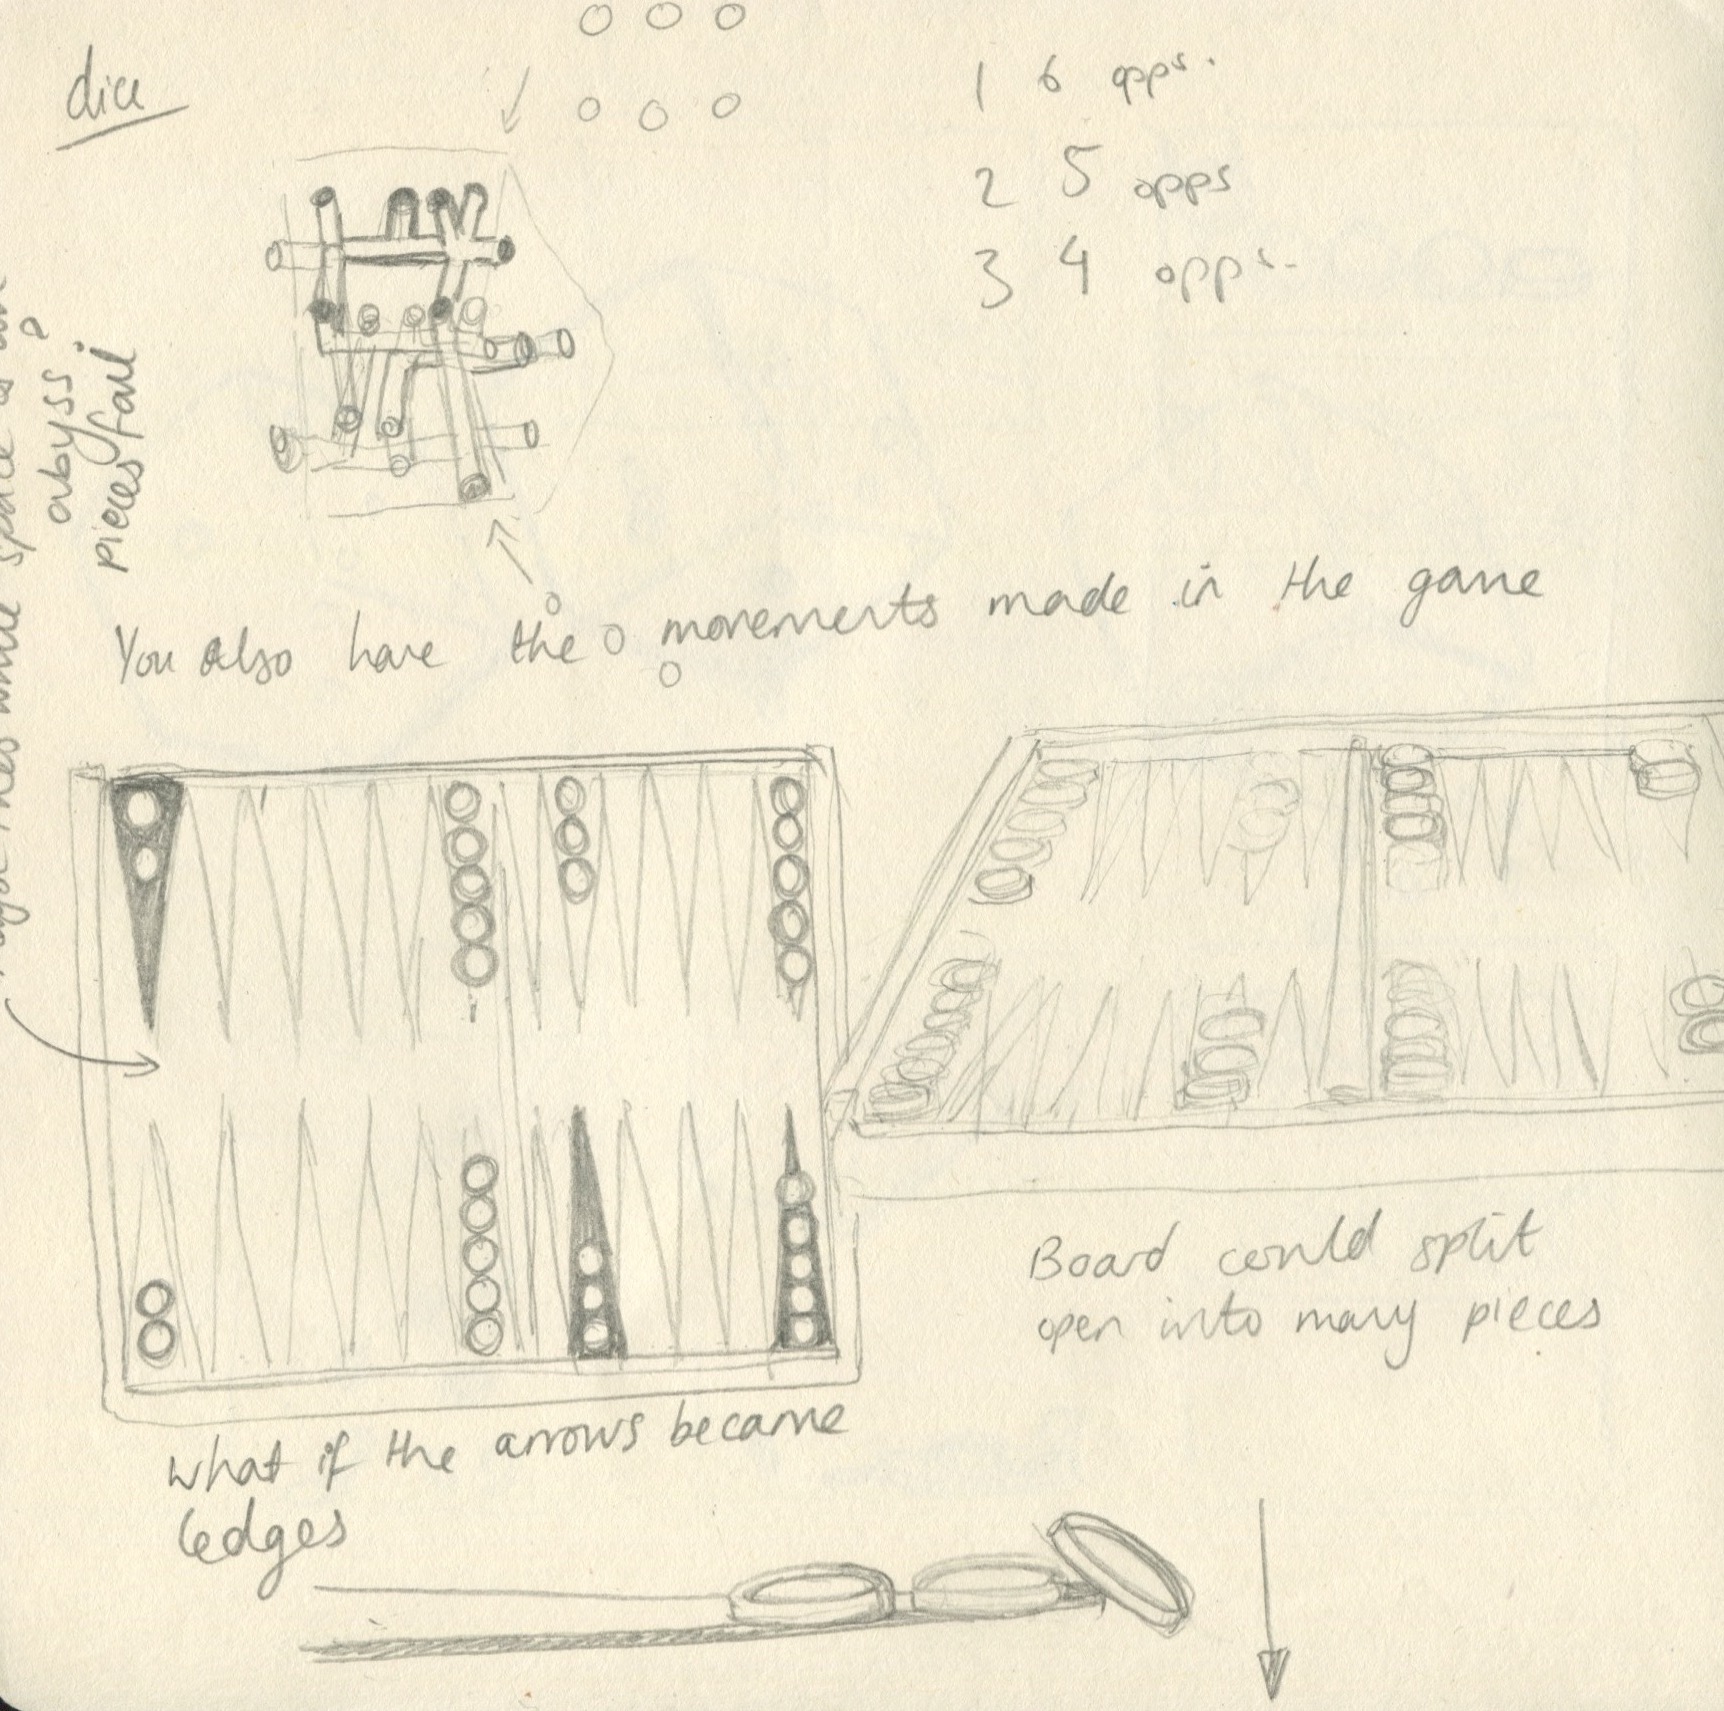 dice
1 6 opps.
2 5 opps
3 4 opps.
You also have the movements made in the game
white space is
abyss?
pieces fall
Board could split
open into many pieces
What if the arrows became
ledges